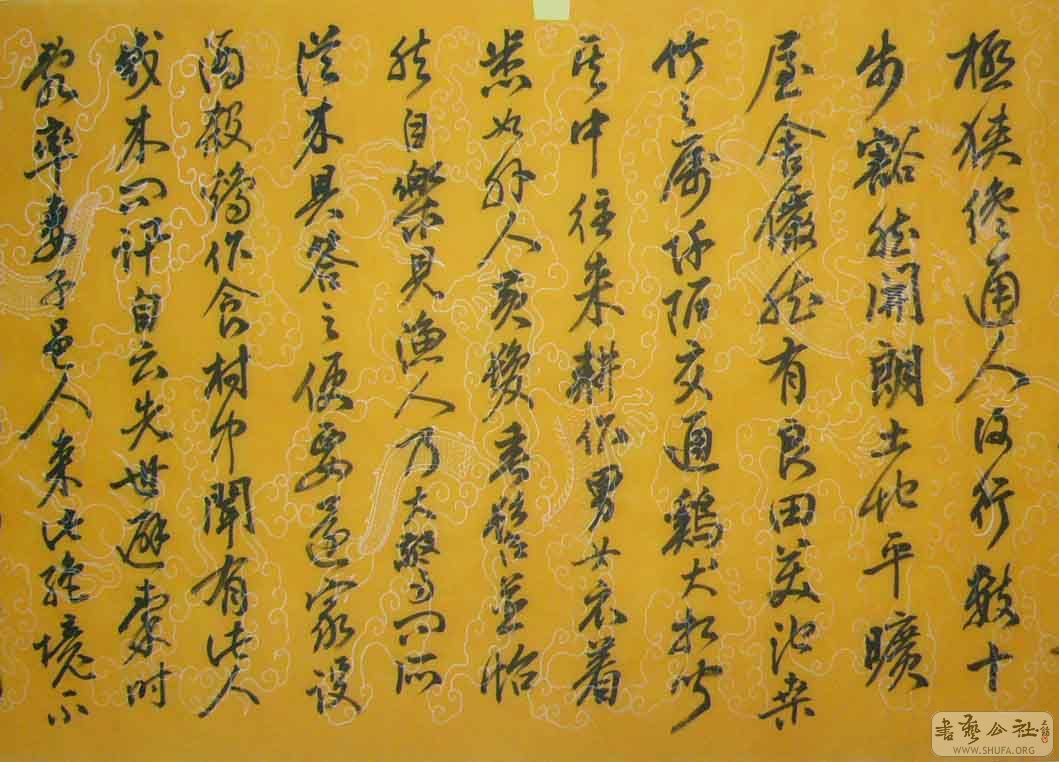 極狹纔通人復行數十
步豁然開朗土地平曠
屋舍儼然有良田美池桑
竹之属阡陌交通鷄犬相聞
其中往来耕作男女衣着
悉如外人黃髮垂髫並怡
然自樂見漁人乃大驚问所
從来具答之便要還家设
酒殺鷄作食村中聞有此人
咸来问訊自云先世避秦时
亂率妻子邑人来此絶境不
書藝公社
WWW.SHUFA.ORG